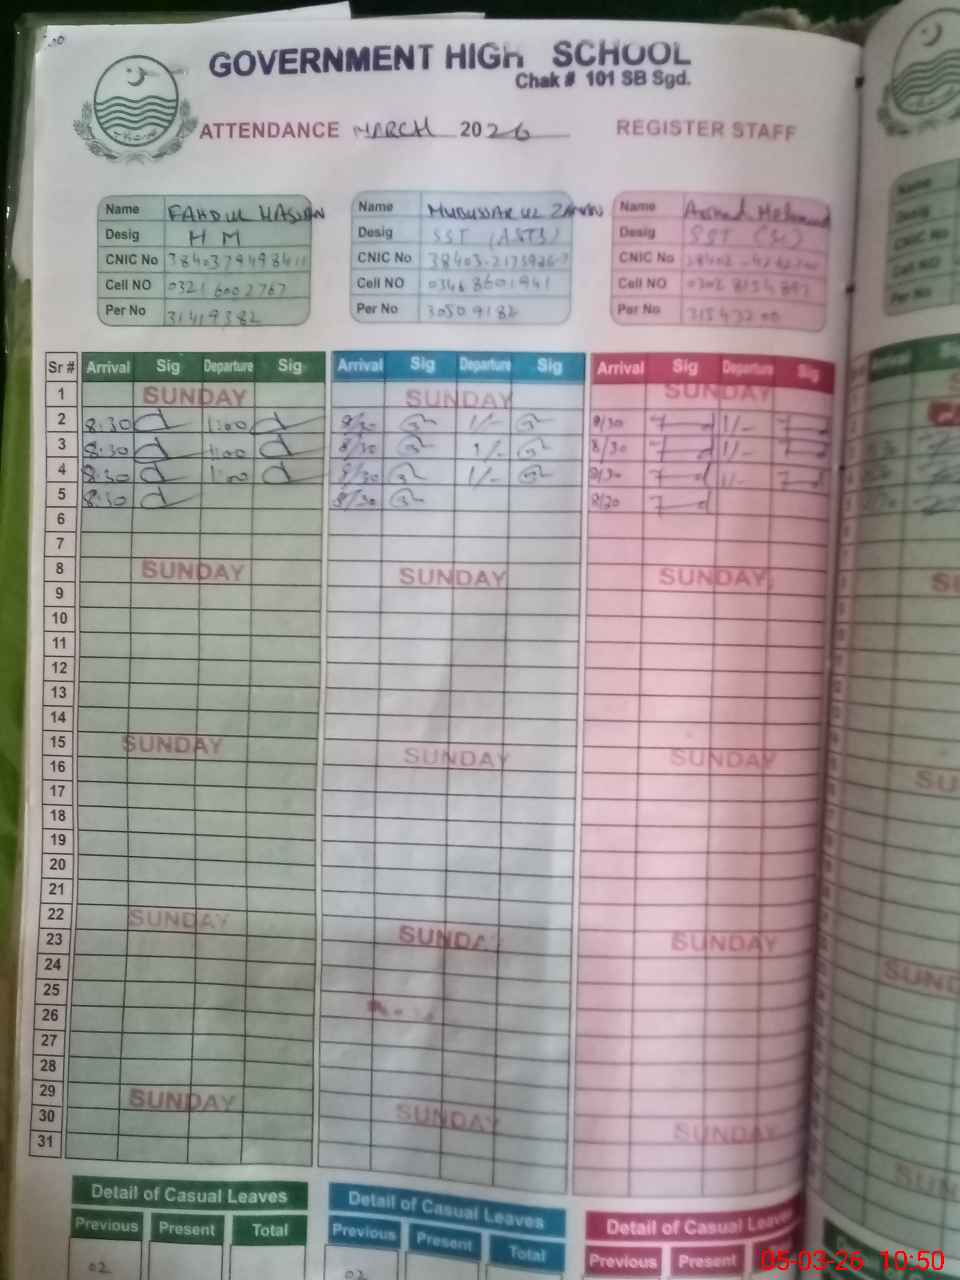 GOVERNMENT HIGH SCHOOL
Chak # 101 SB Sgd.
ATTENDANCE MARCH 2026 REGISTER STAFF
Name FAHDUL HASSAN Name MUBUSSAR UZ ZAMAN Name Arshad Mehmood
Desig H M Desig SST Desig SST
CNIC No CNIC No CNIC No
Cell NO 0321 6002767 Cell NO 0346 8601941 Cell NO
Per No 31419382 Per No 30509182 Per No
Sr # Arrival Sig Departure Sig Arrival Sig Departure Sig Arrival Sig Departure Sig
1 SUNDAY SUNDAY SUNDAY
2 8:30 1:00 8/30 1/- 8/30 1/-
3 8:30 1:00 8/30 1/- 8/30 1/-
4 8:30 1:00 8/30 1/- 8/30 1/-
5 8:30 8/30 8/30
6
7
8 SUNDAY SUNDAY SUNDAY
9
10
11
12
13
14
15 SUNDAY SUNDAY SUNDAY
16
17
18
19
20
21
22 SUNDAY SUNDAY SUNDAY
23
24
25
26
27
28
29 SUNDAY SUNDAY SUNDAY
30
31
Detail of Casual Leaves Detail of Casual Leaves Detail of Casual Leaves
Previous Present Total Previous Present Total Previous Present
02 02
05-03-26 10:50